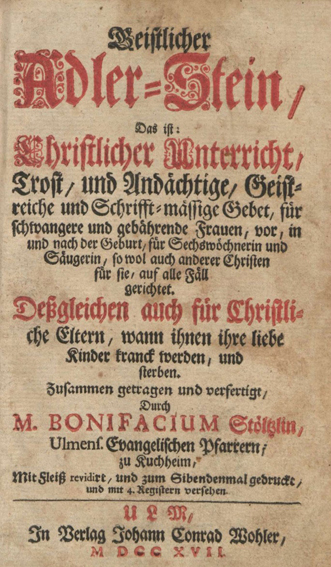 Geistlicher
Adler-Stein/
Das ist:
Christlicher Unterricht/
Trost/ und Andächtige/ Geist-
reiche und Schrifft-mässige Gebet, für
schwangere und gebährende Frauen, vor, in
und nach der Geburt, für Sechswöchnerin und
Säugerin, so wol auch anderer Christen
für sie, auf alle Fäll
gerichtet.
Deßgleichen auch für Christli-
che Eltern, wann ihnen ihre liebe
Kinder kranck werden, und
sterben.
Zusammen getragen und verfertigt,
Durch
M. BONIFACIUM Stöltzlin,
Ulmens. Evangelischen Pfarrern,
zu Kuchheim,
Mit Fleiß revidirt, und zum Sibendenmal gedruckt,
und mit 4. Registern versehen.
ULM,
In Verlag Johann Conrad Wohler,
MDCCXVII.